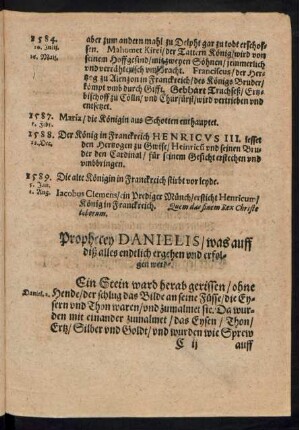 1584. aber zum andern mahl zu Delpht gar zu todt erschos-
10. Julij. sen. Mahumet Kirei/der Tattern König/wird von
seinem Hoffgesind/mit zweyen Söhnen/jemmerlich
und verrähterisch umbracht. Franciscus/der Her-
tzog zu Alenzon in Franckreich/des Königs Bruder/
kömpt umb durch Gifft. Gebhart Truchseß/Ertz-
bischoff zu Cölln/und Churfürst/wird vertrieben und
entsetzet.
1587. Maria/die Königin aus Schotten enthauptet.
1588. Der König in Franckreich HENRICVS III. lesset
den Hertzogen zu Gvise/Heinricū und seinen Bru-
der den Cardinal/für seinem Gesicht erstechen und
umbbringen.
1589. Die alte Königin in Franckreich stirbt vor leyde.
5. Jan.
1. Aug. Iacobus Clemens/ein Prediger Münch/ersticht Henricum/
König in Franckreich. Quem das finem Rex Christe
laborum.
Prophecey DANIELIS/was auff
diß alles endlich ergehen und erfol-
gen werde.
Daniel. 2. Ein Stein ward herab gerissen/ohne
Hende/der schlug das Bilde an seine Füsse/die Ey-
sern und Thon waren/und zumalmet sie. Da wur-
den mit einander zumalmet/das Eysen/Thon/
Ertz/Silber und Goldt/und wurden wie Sprew
C ij auff